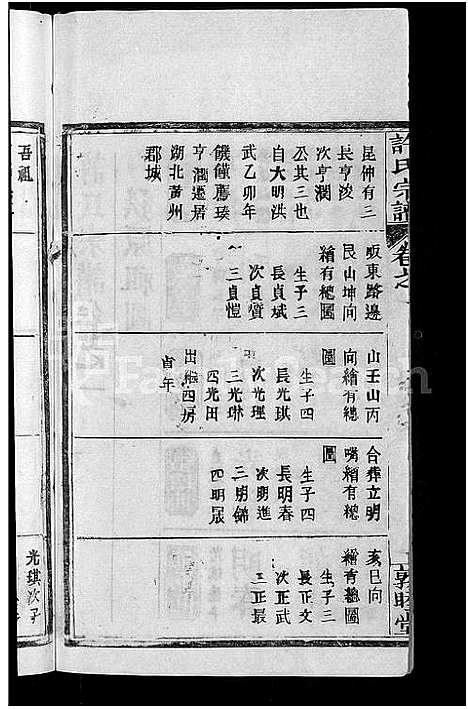 許氏宗譜
卷之
敦睦堂
昆仲有三
長亨浚
次亨潤
公其三也
自大明洪
武乙卯年
饑饉薦臻
亨潤遷居
湖北黃州
郡城
畈東路邊
艮山坤向
繪有總圖
生子三
長貞斌
次貞質
三貞愷
山壬山丙
向繪有總
圖
生子四
長光琪
次光理
三光琳
四光田
出繼四房
貞年
合葬立明
嘴繪有總
圖
生子四
長明春
次明進
三明錦
四明宬
亥巳向
繪有總圖
生子三
長正文
次正武
三正最
吾祖
光琪次子